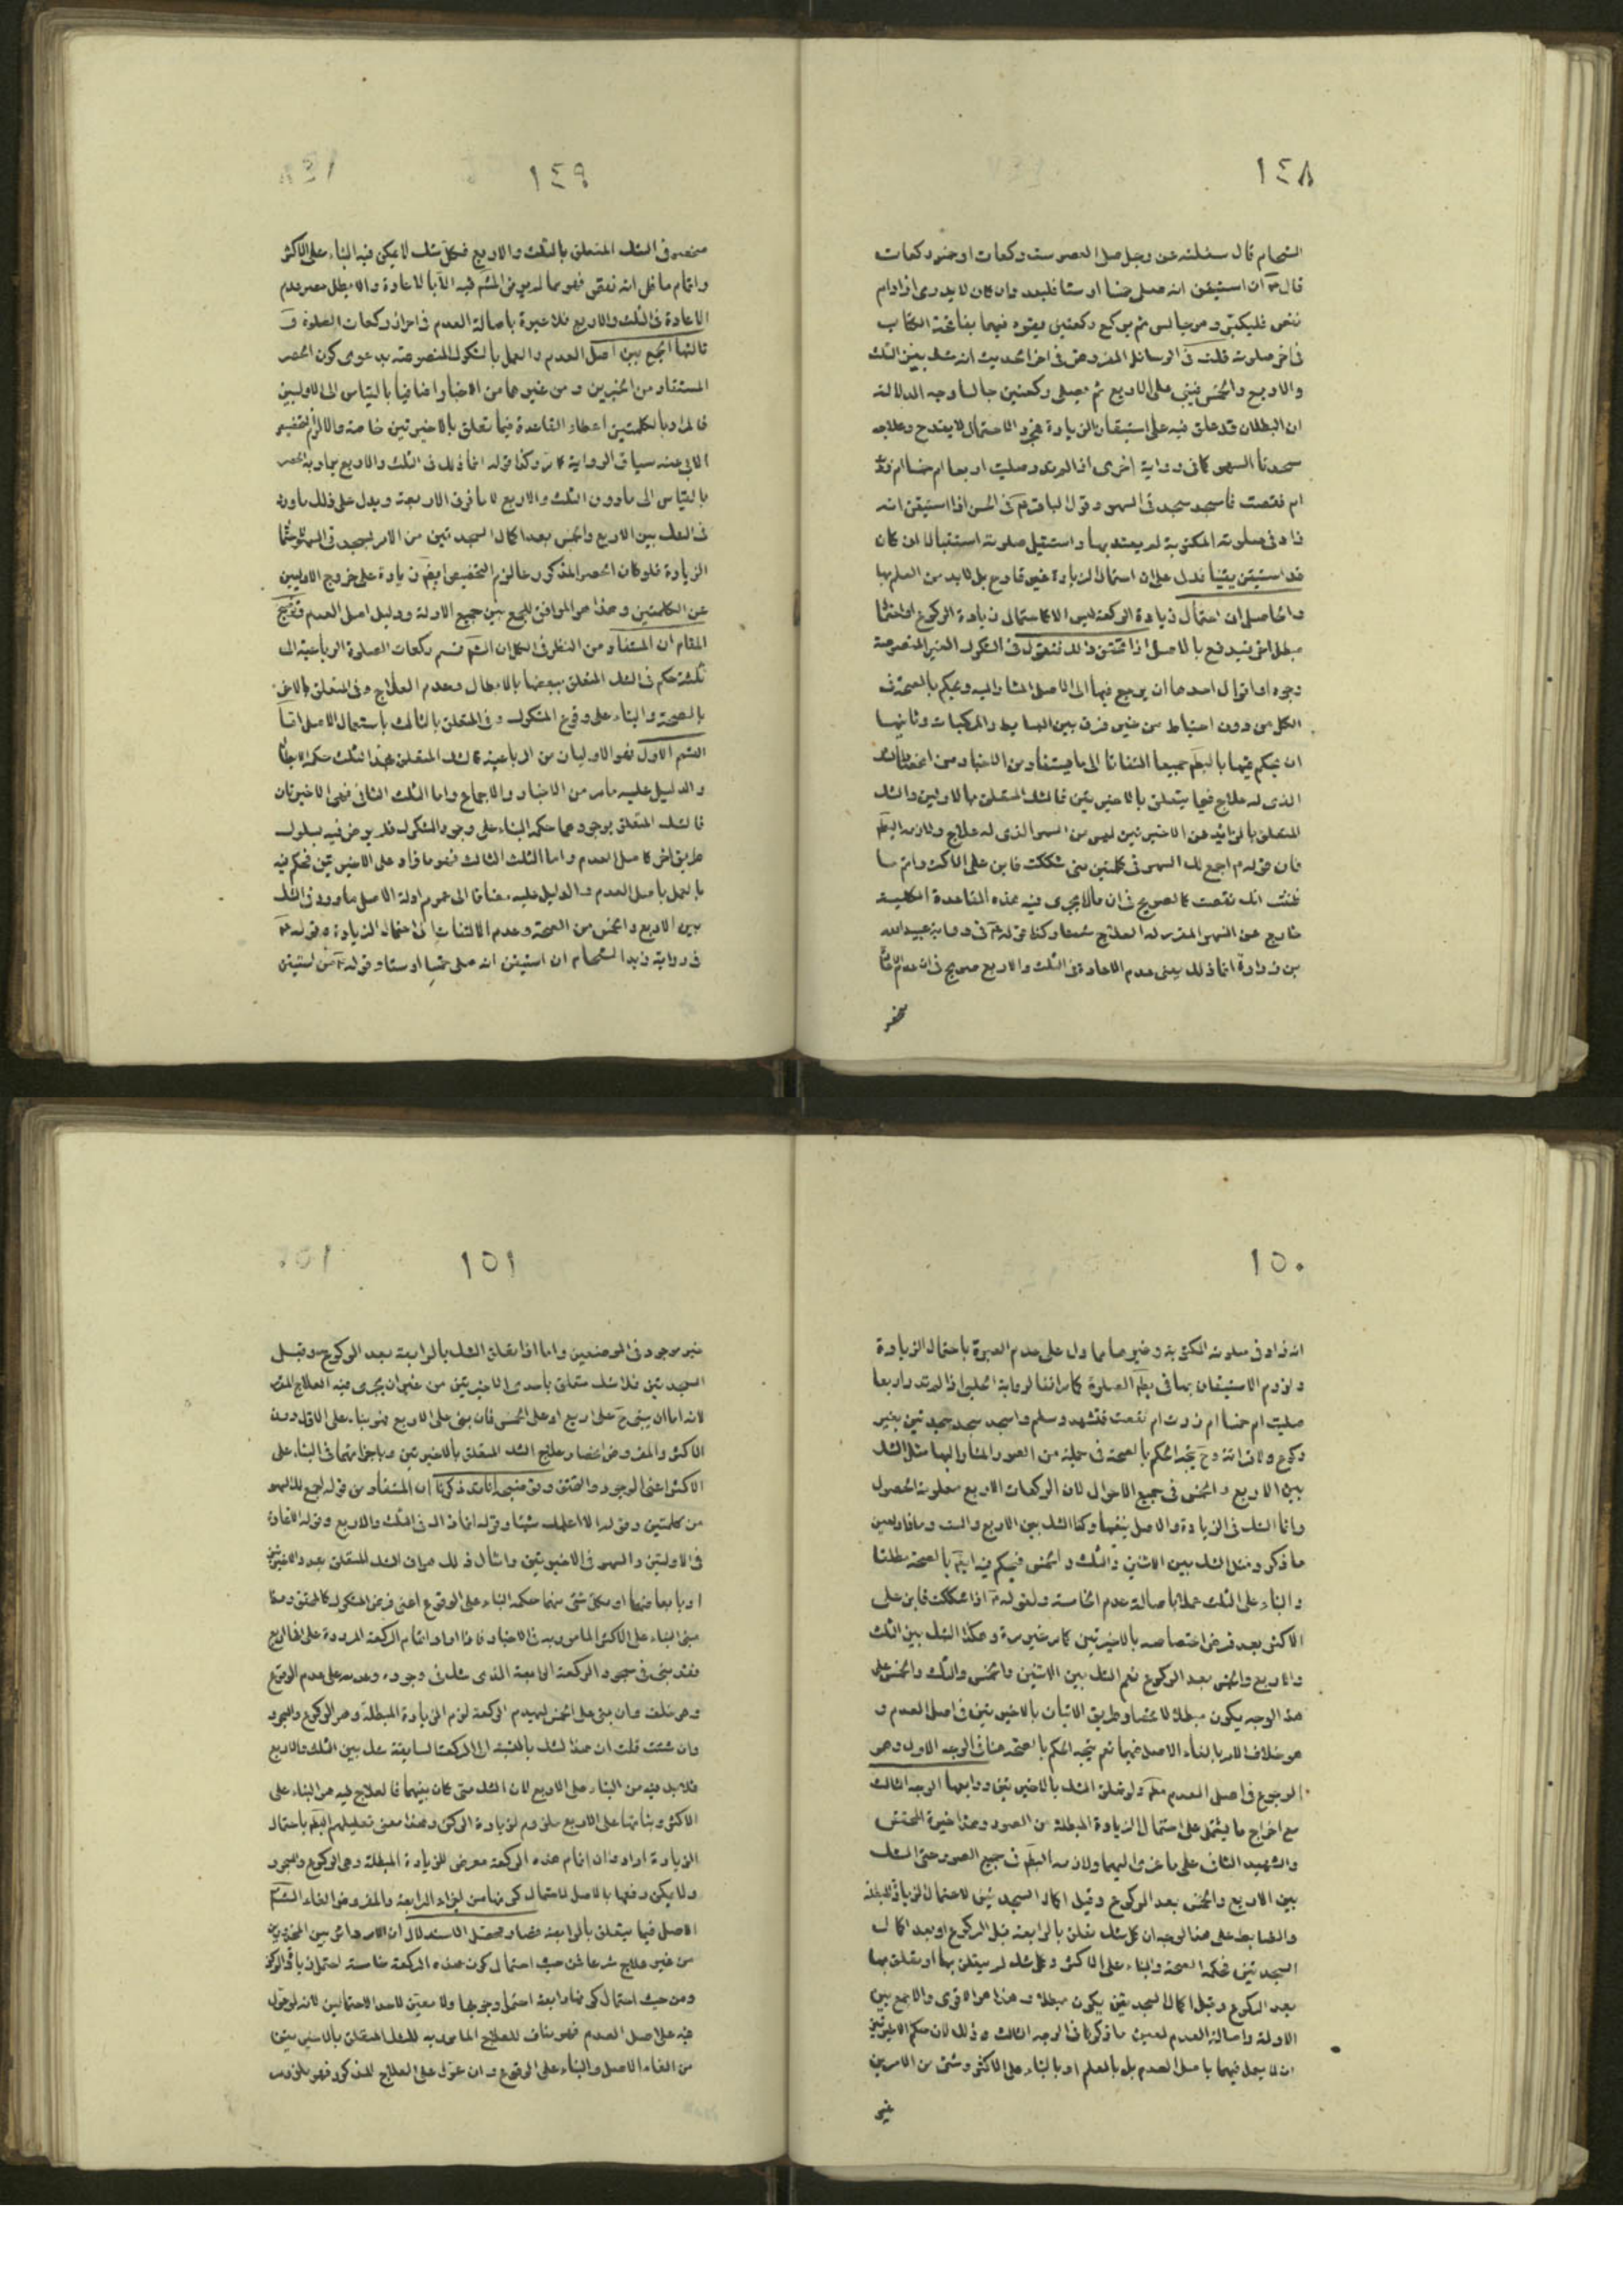 ١٤٨
الشحام قال سئلته عن رجل صلى العصر ست ركعات او خمس ركعات
قال ان استيقن انه صلى خمسا او ستا فليعد وان كان لا يدرى ازاد ام
نقص فليكبر وهو جالس ثم يركع ركعتين يقرء فيهما بفاتحة الكتاب
فى اخر صلوته قلت فى الوسائل المفروض فى اخر الحديث انه شك بين الثلث
والاربع والخمس فيبنى على الاربع ثم يصلى ركعتين جالسا وجه الدلالة
ان البطلان قد علق فيه على استيقان الزيادة فمجرد الاحتمال لا يقدح وعلاجه
سجدتا السهو كما فى رواية اخرى اذا لم تدر صليت اربعا ام خمسا ام زدت
ام نقصت فاسجد سجدتى السهو وقول الباقر فى الحسن اذا استيقن انه
زاد فى صلوته المكتوبة لم يعتد بها واستقبل صلوته استقبالا اذا كان
قد استيقن يقينا فدل على ان احتمال الزيادة غير قادح بل لابد من العلم بها
والحاصل ان احتمال زيادة الركعة ليس الا كاحتمال زيادة الركوع
فى الشكوك الغير المنصوصة
وجوه او اقوال احدها ان يرجع فيها الى الاصل المشار اليه ويحكم بالصحة فى
الكل من دون احتياط من غير فرق بين البسايط والمركبات وثانيها
ان يحكم فيها بالبطلان جميعا التفاتا الى ما يستفاد من الاخبار من
الذى له علاج فيما يتعلق بالاخيرتين فالشك المتعلق بالاوليين والشك
المتعلق بالزائد عن الاخيرتين ليس من السهو الذى له علاج
فان قوله اجمع لك السهو فى كلمتين متى شككت فابن على الاكثر واتم ما
ظننت انك نقصت كالصريح فى ان مالا يجرى فيه هذه القاعدة الكلية
خارج عن السهو المقرر له العلاج شرعا وكذا قوله فى رواية عبيد الله
بن زرارة انما ذلك يعنى عدم الاعادة فى الثلث والاربع صريح فى ان عدم الاعادة
منحصر
١٤٩
منحصر فى الشك المتعلق بالثلث والاربع فكل شك لا يمكن فيه البناء على الاكثر
واتمام ما ظن انه نقص فهو مما لم يرض الشارع فيه الا بالاعادة والا لبطل حصر عدم
الاعادة فى الثلث والاربع فلا عبرة باصالة العدم فى احراز ركعات الصلوة
ثالثها الجمع بين اصل العدم والعمل بالشكوك المنصوصة بدعوى كون الحصر
المستفاد من الخبرين ومن غيرهما من الاخبار اضافيا بالقياس الى الاوليين
فالمراد بالكلمتين اعطاء القاعدة فيما تعلق بالاخيرتين خاصة والا لزم التخصيص
الابى عنه سياق الرواية كما مر وكذا قوله انما ذلك فى الثلث والاربع يراد به الحصر
بالقياس الى ما دون الثلث والاربع لا ما فوق الاربعة ويدل على ذلك ما ورد
فى الشك بين الاربع والخمس بعد اكمال السجدتين من الامر بسجدتى السهو
الزيادة فلو كان الحصر المذكور عاما لزم التخصيص ايضا زيادة على خروج الاوليين
عن الكلمتين وهذا هو الموافق للجمع بين جميع الادلة ودليل اصل العدم
المقام ان المستفاد من النظر فى الكل ان الشارع قسم ركعات الصلوة الرباعية الى
ثلثة حكم فى الشك المتعلق ببعضها بالابطال وعدم العلاج وفى المتعلق بالاخر
بالصحة والبناء على وقوع المشكوك وفى المتعلق بالثالث باستعمال الاصل اما
القسم الاول فهو الاوليان من الرباعية
والدليل عليه ما مر من الاخبار والاجماع واما الثلث الثانى فهى الاخيرتان
فالشك المتعلق بوجودهما حكمه البناء على وجود المشكوك فلا يرض فيه بسلوك
طريق اخر كاصل العدم واما الثلث الثالث فهو ما زاد على الاخيرتين فحكم فيه
بالعمل باصل العدم والدليل عليه مضافا الى عموم ادلة الاصل ما ورد فى الشك
بين الاربع والخمس من الصحة وعدم الالتفات الى احتمال الزيادة وقوله
فى رواية زيد الشحام ان استيقن انه صلى خمسا او ستا وقوله من استيقن
١٥٠
انه زاد فى صلوته المكتوبة وغيرهما مما دل على عدم العبرة باحتمال الزيادة
ولزوم الاستيقان بها فى بطلان الصلوة كما مر انفا لرواية الحلبى اذا لم تدر اربعا
صليت ام خمسا ام زدت ام نقصت فتشهد وسلم واسجد سجدتين بغير
ركوع ولا قرائة وح يتجه الحكم بالصحة فى جملة من الصور المشار اليها مثل الشك
بين الاربع والخمس فى جميع الاحوال لان الركعات الاربع معلومة الحصول
وانما الشك فى الزيادة والاصل ينفيها وكذا الشك بين الاربع والست وما زاد بعين
ما ذكر ومثل الشك بين الاثنين والثلث والخمس فيحكم فيه ايضا بالصحة مطلقا
والبناء على الثلث عملا باصالة عدم الخامسة ولقوله اذا شككت فابن على
الاكثر بعد فرض اختصاصه بالاخيرتين كما مر غير مرة وهكذا الشك بين الثلث
والاربع والخمس بعد الركوع نعم الشك بين الاثنين والخمس والثلث والخمس على
هذا الوجه يكون مبطلا لانحصار طريق الاتيان بالاخيرتين فى اصل العدم و
هو خلاف الامر بالغاء الاصل فيهما نعم يتجه الحكم بالصحة هنا فى الوجه الاول وهو
الرجوع فى اصل العدم مطلقا ولو تعلق الشك بالاخيرتين ورابعها الوجه الثالث
مع اخراج ما يشتمل على احتمال الزيادة المبطلة من الصور وهذا خيرة المحقق
والشهيد الثانى على ما عزى اليهما ولازمه البطلان فى جميع الصور حتى الشك
بين الاربع والخمس بعد الركوع وقبل اكمال السجدتين لاحتمال الزيادة المبطلة
والضابط على هذا الوجه ان كل شك تعلق بالرابعة قبل الركوع او بعد اكمال
السجدتين فحكمه الصحة والبناء على الاكثر وكل شك لم يتعلق بها او تعلق بها
بعد الركوع وقبل اكمال السجدتين يكون مبطلا وهذا هو الاقوى والاجمع بين
الادلة واصالة العدم لعين ما ذكرنا فى الوجه الثالث وذلك لان حكم الاخيرتين
ان لا يعمل فيهما باصل العدم بل بالعلم او بالبناء على الاكثر وشئ من الامرين
غير
١٥١
غير موجود فى الموضعين واما اذا تعلق الشك بالرابعة بعد الركوع وقبل
السجدتين فلانه شك متعلق باحدى الاخيرتين من غير ان يجرى فيه العلاج المقرر
لانه اما ان يبنى ح على اربع او على الخمس فان بنى على الاربع فهو بناء على الاقل دون
الاكثر والمفروض انحصار علاج الشك المتعلق بالاخيرتين وباجزائهما فى البناء على
الاكثر اعنى الوجود والتحقق وتوضيحه انا قد ذكرنا ان المستفاد من قوله اجمع لك السهو
من كلمتين وقوله الا اعلمك شيئا وقوله انما ذلك فى الثلث والاربع وقوله الاعادة
فى الاوليتين والسهو فى الاخيرتين وامثال ذلك هو ان الشك المتعلق بعدد الاخيرتين
او بابعاضهما او بكل شئ منهما حكمه البناء على الوقوع اعنى فرض المشكوك كالمحقق
معنى البناء على الاكثر المامور به فى الاخبار فاذا اراد اتمام الركعة المرددة على انها اربع
فقد بنى فى سجود الركعة الرابعة الذى شك فى وجوده وعدمه على عدم الوقوع
وهو خلف وان بنى على الخمس ليهدم الركعة لزم الزيادة المبطلة وهو الركوع والسجود
وان شئت قلت ان هذا الشك بالنسبة الى الركعة السابقة شك بين الثلث والاربع
فلابد فيه من البناء على الاربع لان الشك متى كان بينهما فالعلاج فيه هو البناء على
الاكثر وبنائها على الاربع ملزوم لزيادة الركن وهذا معنى تعليلهم البطلان باحتمال
الزيادة ارادوا ان اتمام هذه الركعة معرض للزيادة المبطلة وهى الركوع والسجود
ولا يمكن دفعها بالاصل لاحتمال كونها من اجزاء الرابعة والمفروض الغاء الشارع
الاصل فيما يتعلق بالرابعة فصار محصل الاستدلال ان الامر دائر بين المحذورين
من غير علاج شرعا فمن حيث احتمال كون هذه الركعة خامسة احتمل زيادة الركن
ومن حيث احتمال كونها رابعة احتمل وجوبها ولا معين لاحد الاحتمالين لانه لو عول
فيه على اصل العدم فهو مناف للعلاج المامور به للشك المتعلق بالاخيرتين
من الغاء الاصل والبناء على الوقوع وان عول على العلاج المذكور فهو ملزوم